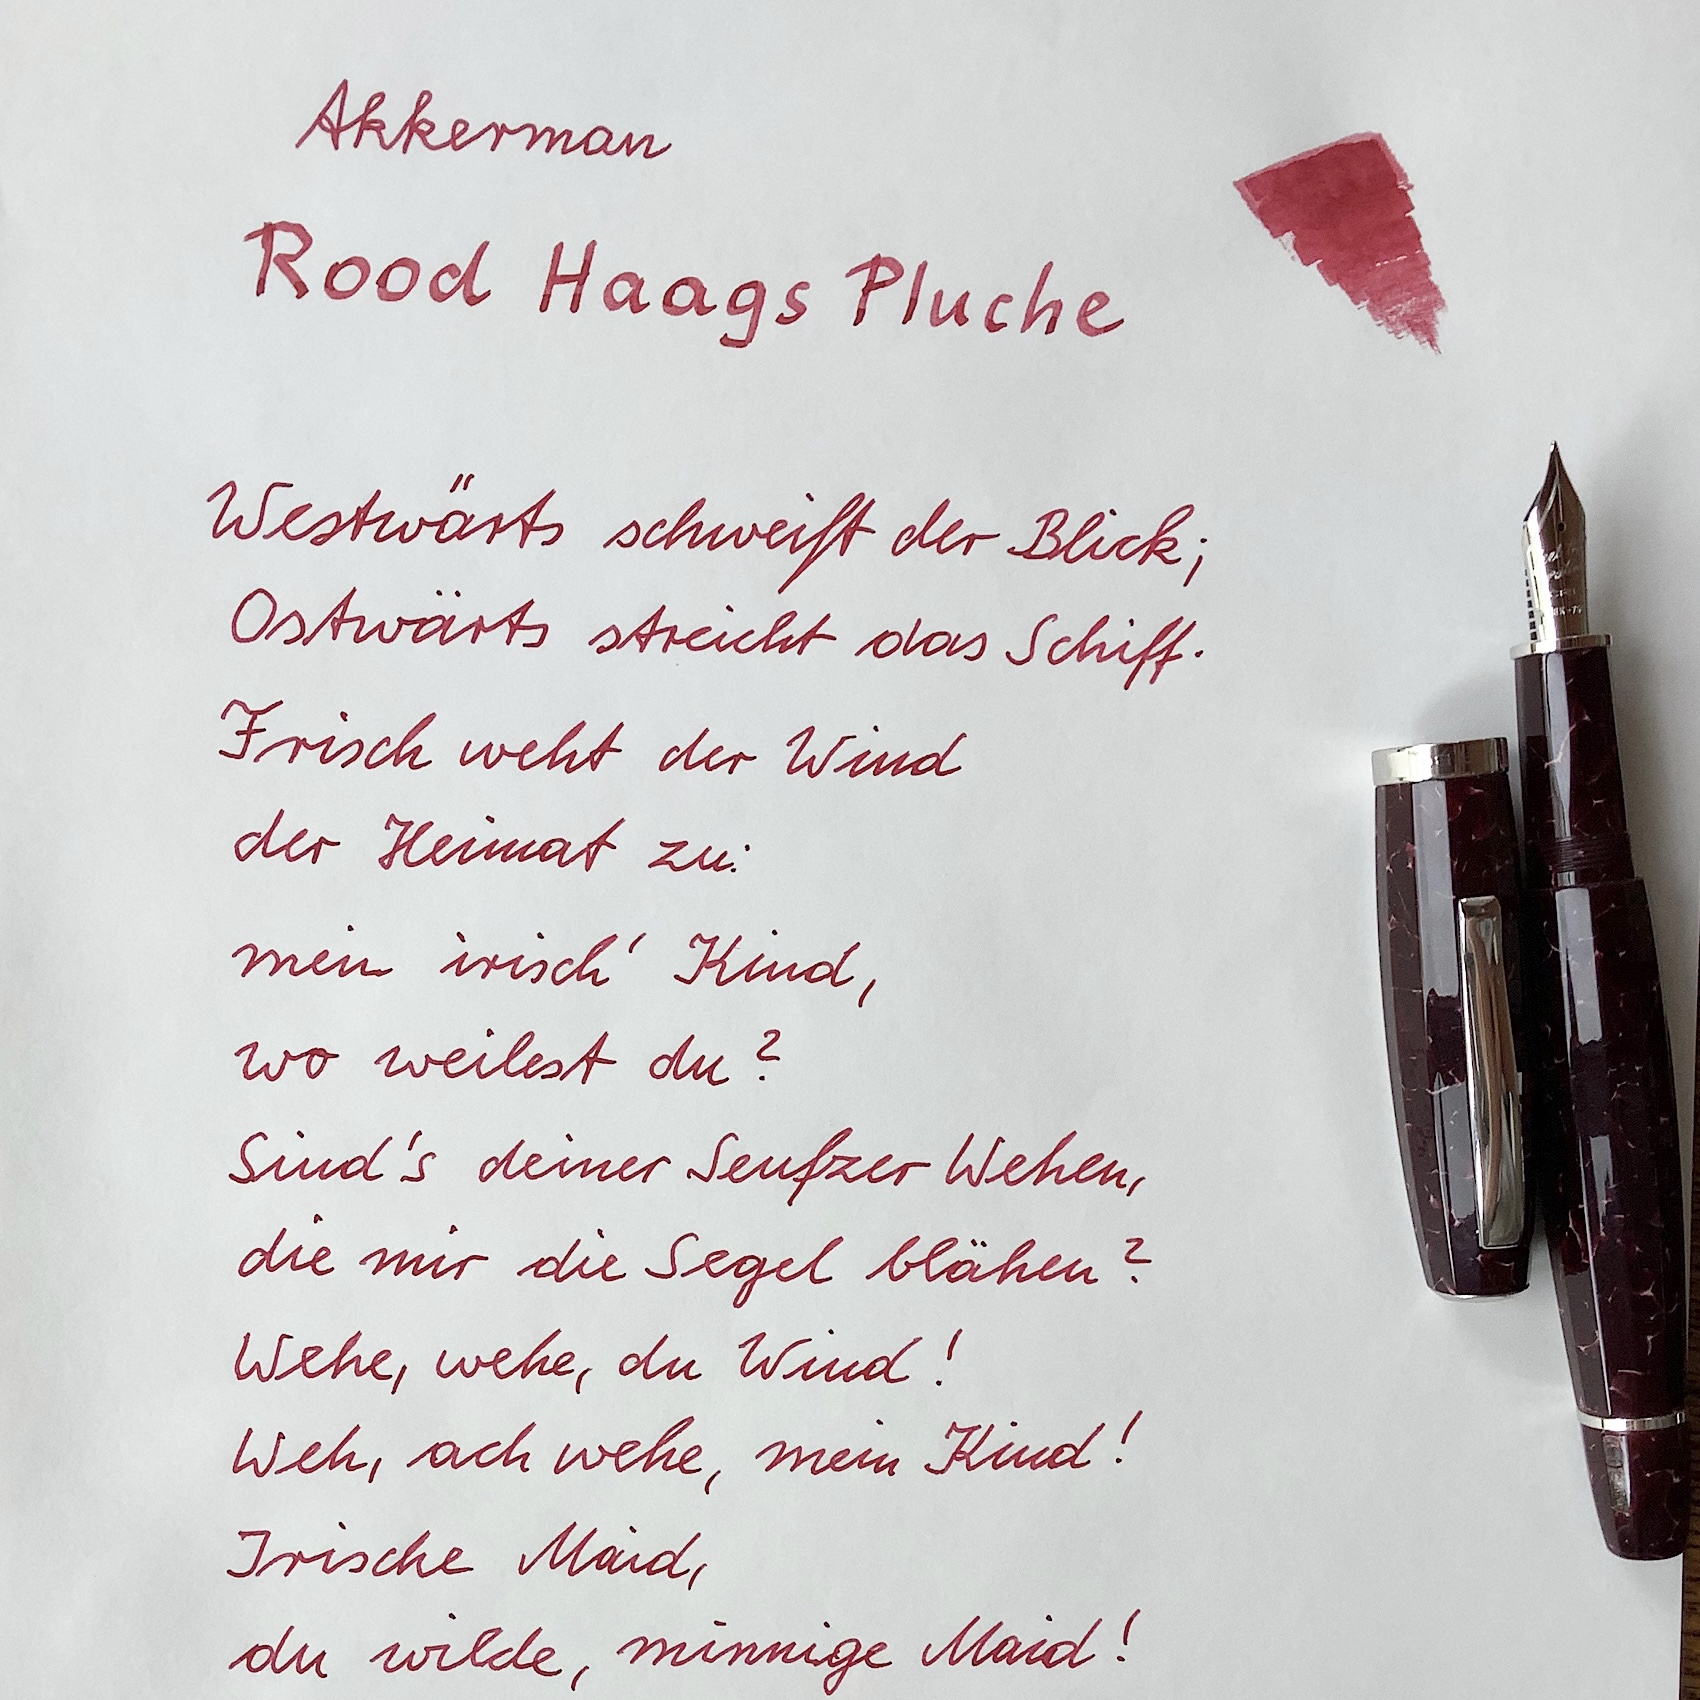 Akkerman
Rood Haags Pluche
Westwärts schweift der Blick;
Ostwärts streicht das Schiff.
Frisch weht der Wind
der Heimat zu:
mein irisch' Kind,
wo weilest du?
Sind's deiner Seufzer Wehen,
die mir die Segel blähen?
Wehe, wehe, du Wind!
Weh, ach wehe, mein Kind!
Irische Maid,
du wilde, minnige Maid!